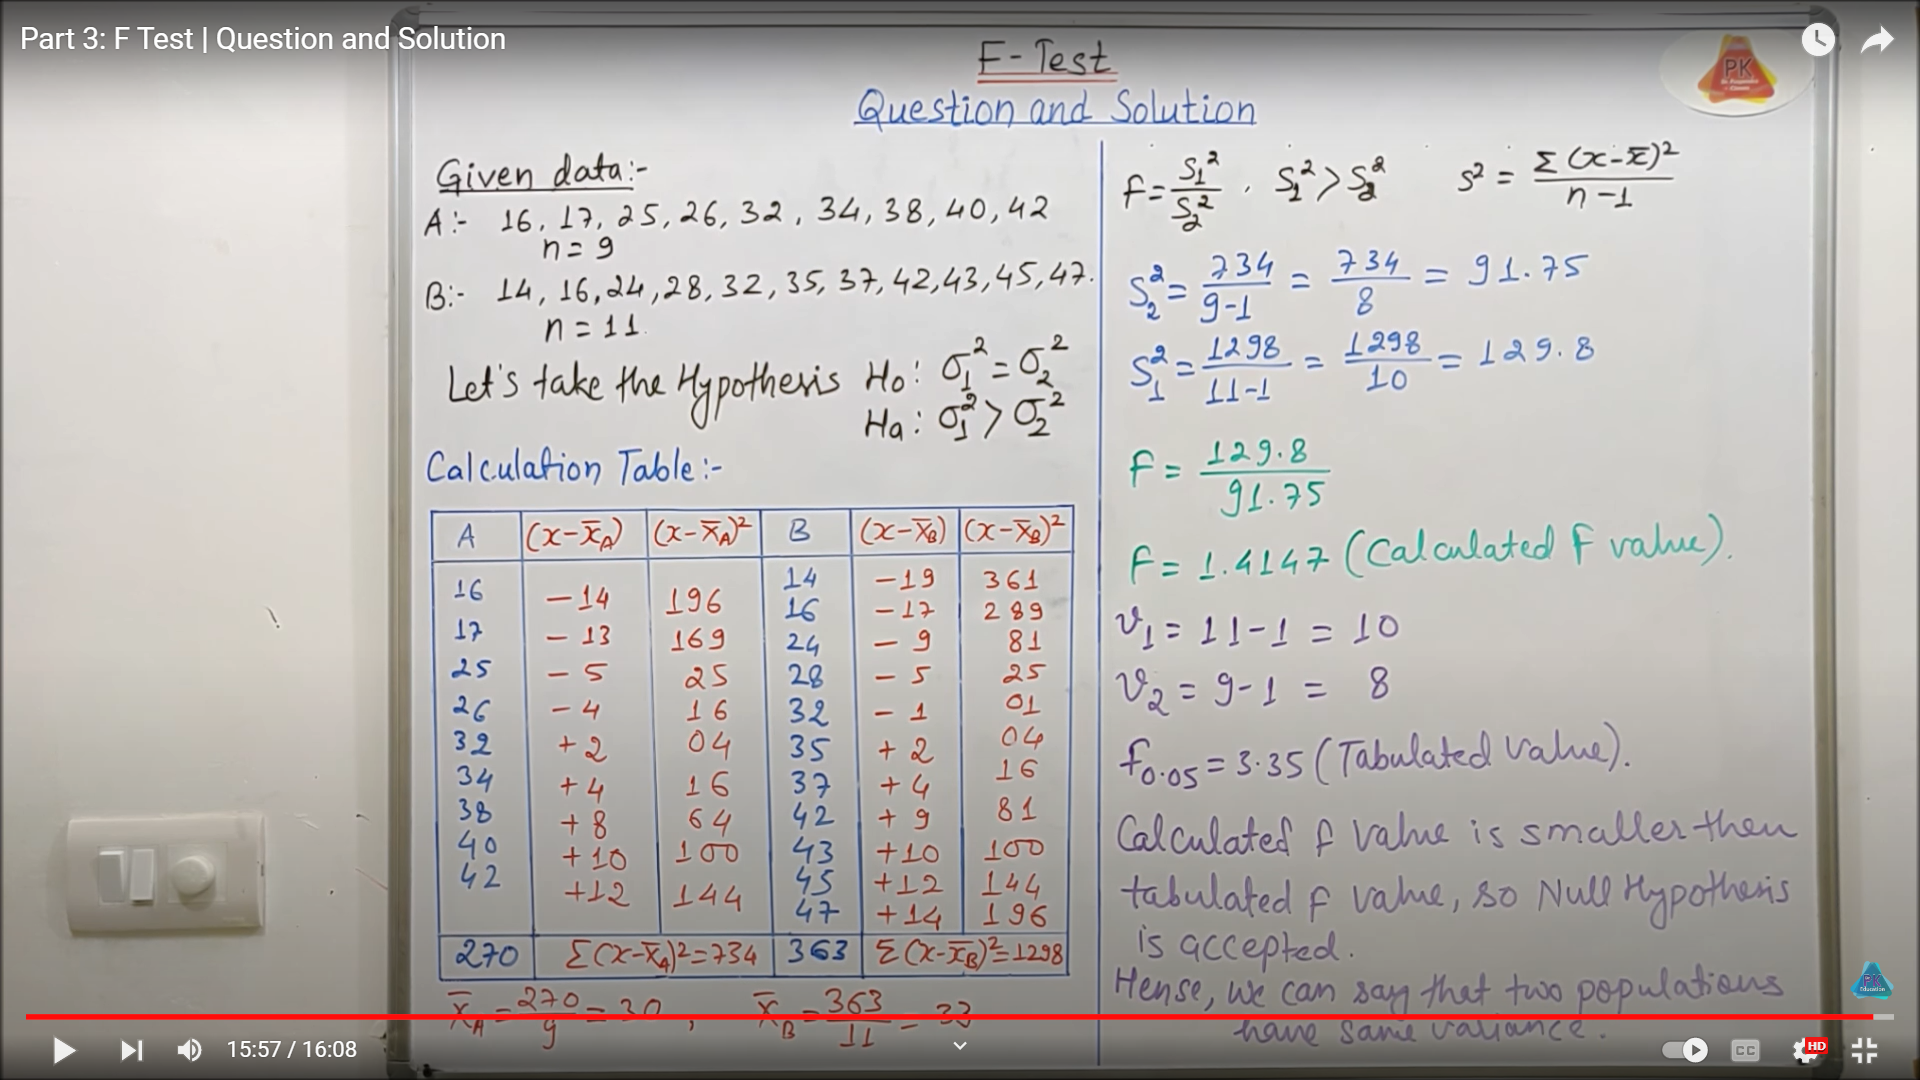 Part 3: F Test | Question and Solution
F-Test
Question and Solution
PK
Given data:-
A:- 16, 17, 25, 26, 32, 34, 38, 40, 42
n = 9
B:- 14, 16, 24, 28, 32, 35, 37, 42, 43, 45, 47.
n = 11.
Let's take the Hypothesis Ho: σ₁² = σ₂²
Ha: σ₁² > σ₂²
Calculation Table:-
A (x-x̄A) (x-x̄A)² B (x-x̄B) (x-x̄B)²
16 -14 196 14 -19 361
17 -13 169 16 -17 289
25 -5 25 24 -9 81
26 -4 16 28 -5 25
32 +2 04 32 -1 01
34 +4 16 35 +2 04
38 +8 64 37 +4 16
40 +10 100 42 +9 81
42 +12 144 43 +10 100
45 +12 144
47 +14 196
270 Σ(x-x̄A)²=734 363 Σ(x-x̄B)²=1298
x̄A = 270/9 = 30, x̄B = 363/11 = 33
F = S₁²/S₂², S₁² > S₂² s² = Σ(x-x̄)²/n-1
S₂² = 734/9-1 = 734/8 = 91.75
S₁² = 1298/11-1 = 1298/10 = 129.8
F = 129.8/91.75
F = 1.4147 (Calculated F value).
v₁ = 11-1 = 10
v₂ = 9-1 = 8
F0.05 = 3.35 (Tabulated value).
Calculated F value is smaller then
tabulated F value, so Null Hypothesis
is accepted.
Hense, we can say that two populations
have same variance.
PK
Education
15:57 / 16:08
CC
HD